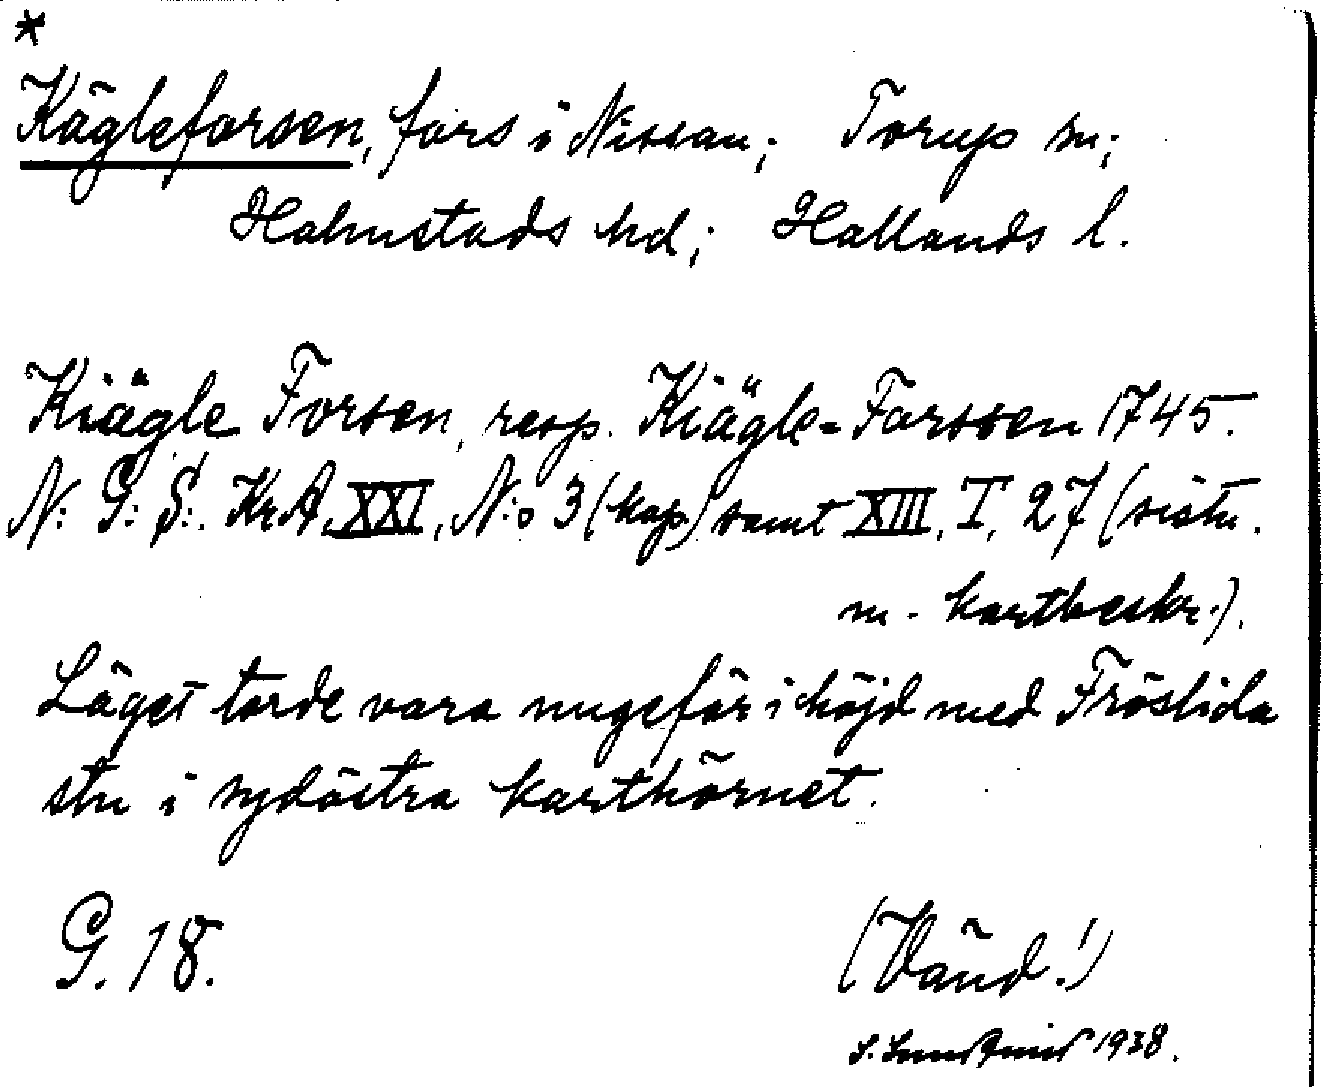 *
Kägleforsen, fors i Nissan; Torup sn;
Halmstads hd; Hallands l.
Kiägle Forsen, resp. Kiägle-Forssen 1745.
N: G: S:. Kr.A. XXI, N:o 3 (kop) samt XIII, I, 27 (sistn.
m. kartbeskr.).
Läget torde vara ungefär i höjd med Fröslida
stn i sydöstra karthörnet.
G. 18.
(Vänd!)
S. 1938.